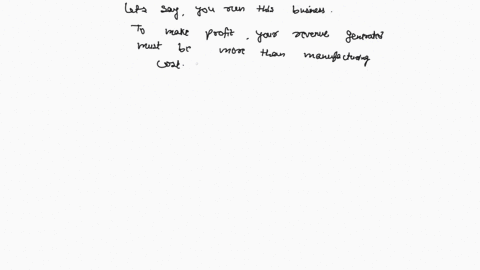 Let's say, you run this business.
To make profit, your revenue generated
must be more than manufacturing
cost.